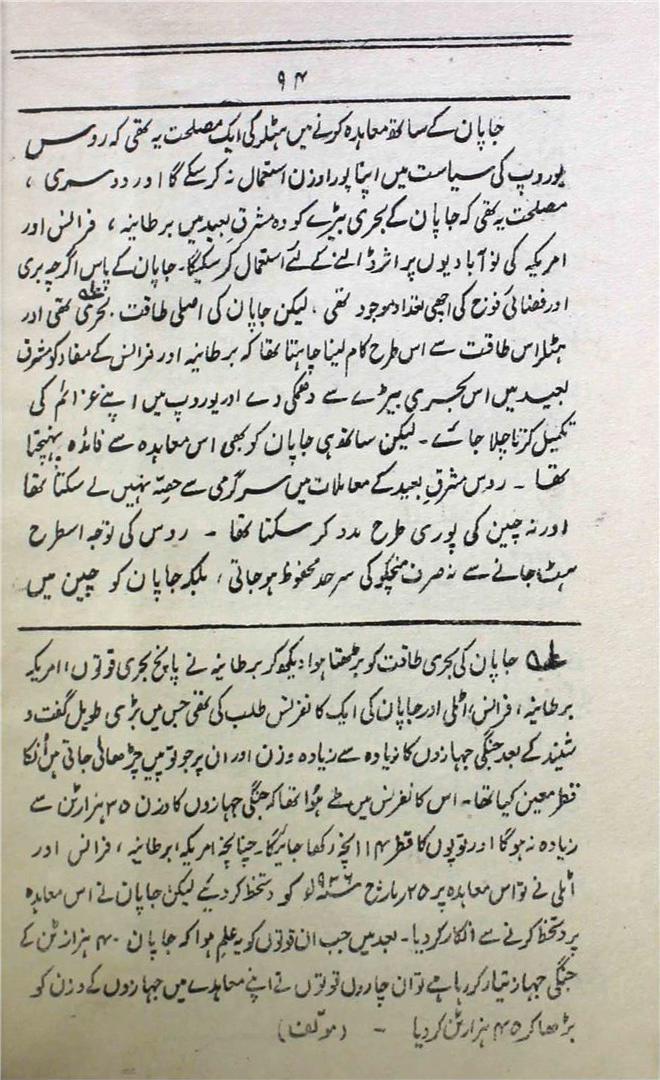 ۹۴
جاپان کے ساتھ معاہدہ کرنے میں ہٹلر کی ایک مصلحت یہ تھی کہ روس
یوروپ کی سیاست میں اپنا پورا وزن استعمال نہ کر سکے گا اور دوسری ،
مصلحت یہ تھی کہ جاپان کے بحری بیڑے کو وہ مشرق بعید میں برطانیہ ، فرانس اور
امریکہ کی نو آبادیوں پر اثر ڈالنے کے لئے استعمال کر سکیگا۔ جاپان کے پاس اگرچہ بری
اور فضائی فوج کی اچھی تعداد موجود تھی ، لیکن جاپان کی اصلی طاقت بحری تھی اور
ہٹلر اس طاقت سے اس طرح کام لینا چاہتا تھا کہ برطانیہ اور فرانس کے مفاد کو مشرق
بعید میں اس بحری بیڑے سے دھمکی دے اور یوروپ میں اپنے عزائم کی
تکمیل کرتا چلا جائے ۔ لیکن ساتھ ہی جاپان کو بھی اس معاہدہ سے فائدہ پہنچتا
تھا ۔ روس مشرق بعید کے معاملات میں سرگرمی سے حصّہ نہیں لے سکتا تھا
اور نہ چین کی پوری طرح مدد کر سکتا تھا ۔ روس کی توجہ اسطرح
ہٹ جانے سے نہ صرف منچکو کی سرحد محفوظ ہو جاتی ، بلکہ جاپان کو چین میں
جاپان کی بحری طاقت کو بڑھتا ہوا دیکھ کر برطانیہ نے پانچ بحری قوتوں ، امریکہ
برطانیہ ، فرانس ، اٹلی اور جاپان کی ایک کانفرنس طلب کی تھی جس میں بڑی طویل گفت و
شنید کے بعد جنگی جہازوں کا زیادہ سے زیادہ وزن اور ان پر جو توپیں چڑھائی جاتی ہیں اُنکا
قطر معین کیا تھا۔ اس کانفرنس میں طے ہوُا تھا کہ جنگی جہازوں کا وزن ۳۵ ہزار ٹن سے
زیادہ نہ ہوگا اور توپوں کا قطر ۱۴ انچہ رکھا جائیگا۔ چنانچہ امریکہ ، برطانیہ ، فرانس اور
اٹلی نے تو اس معاہدہ پر ۲۵ مارچ ۱۹۳۶ء کو دستخط کر دیے لیکن جاپان نے اس معاہدہ
پر دستخط کرنے سے انکار کر دیا۔ بعد میں جب ان قوتوں کو یہ علم ہوا کہ جاپان ۴۰ ہزار ٹن کے
جنگی جہاز تیار کر رہا ہے تو ان چاروں قوتوں نے اپنے معاہدے میں جہازوں کے وزن کو
بڑھا کر ۴۵ ہزار ٹن کر دیا ۔ (مولّف)